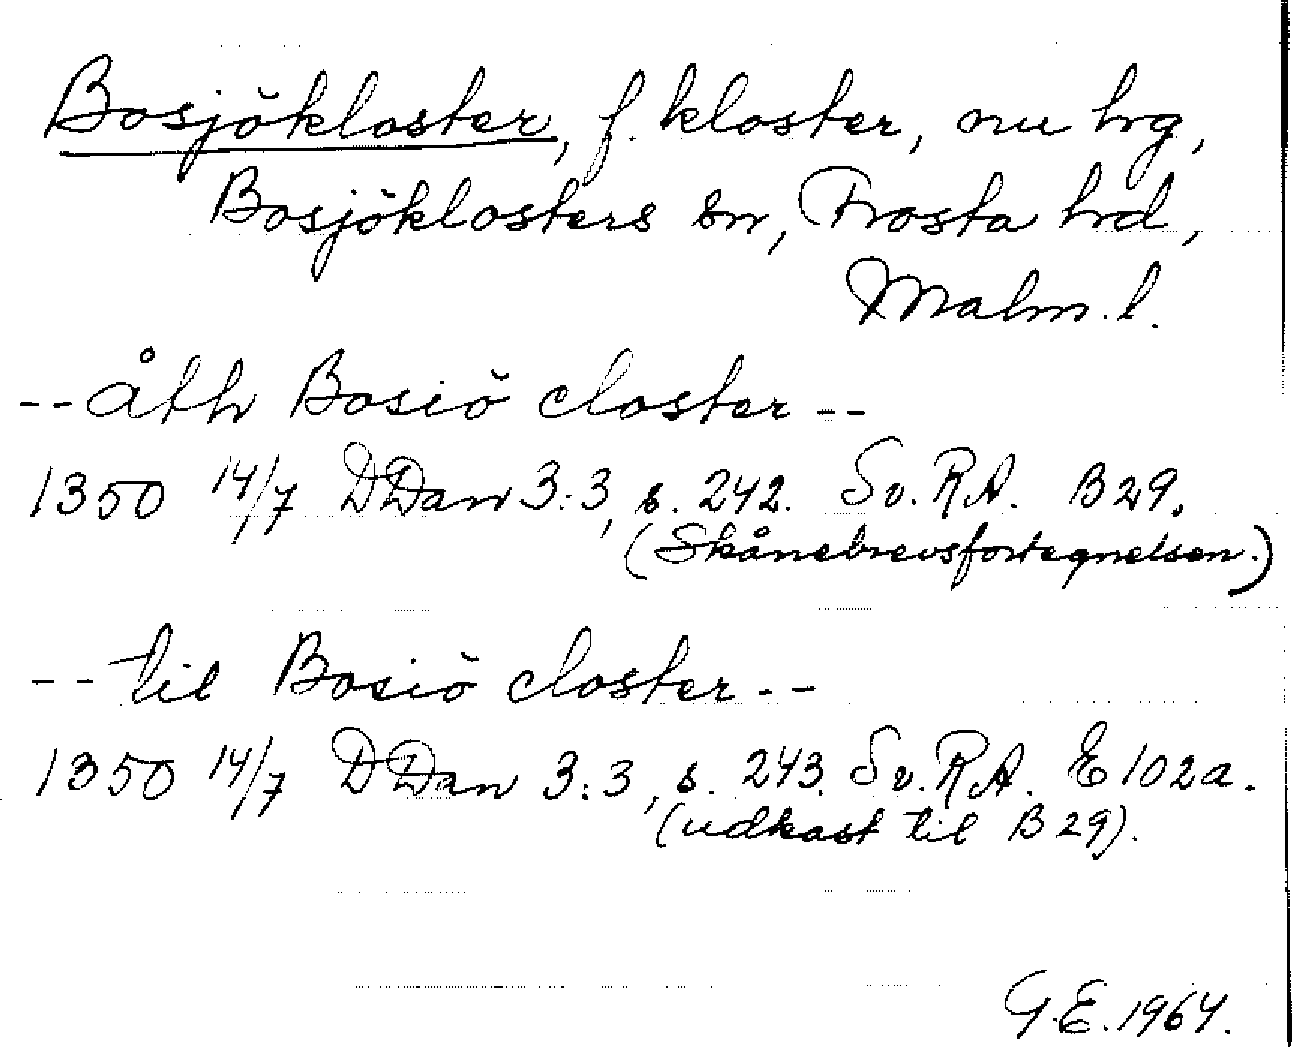 Bosjökloster, f. kloster, nu hrg,
Bosjöklosters sn, Frosta hrd,
Malm. l.
-- åth Bosiö closter --
1350 14/7 DDan 3:3, s. 242. Sv. RA. B 29.
(Skånebrevsfortegnelsen.)
-- til Bosiö closter --
1350 14/7 DDan 3:3, s. 243. Sv. RA. E 102a.
(udkast til B 29).
G.E. 1964.